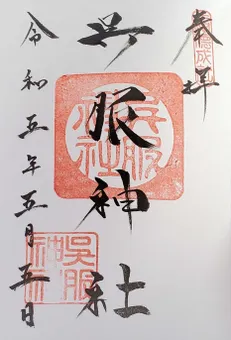 奉拝
呉服神社
令和五年五月五日
呉服神社
吳服神社